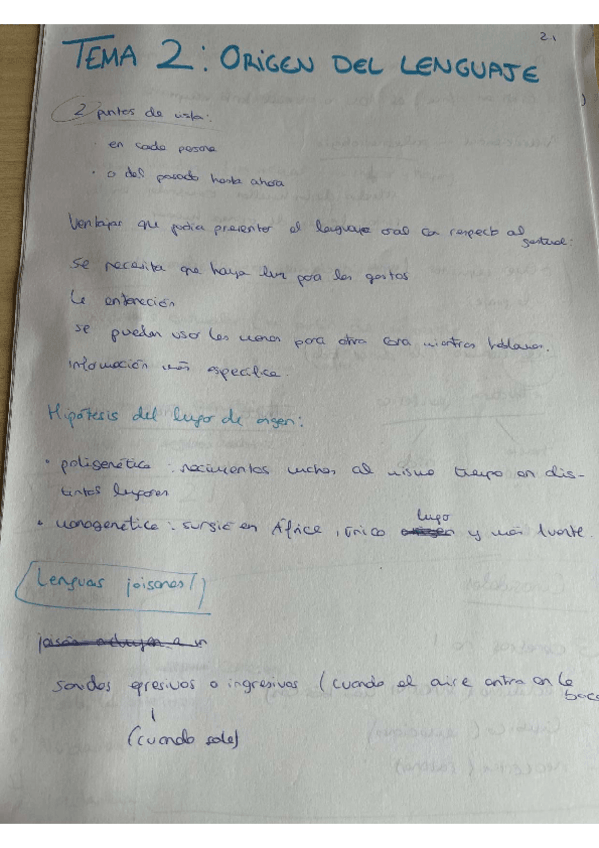 2.1
TEMA 2: ORIGEN DEL LENGUAJE
2 puntos de vista:
· en cada persona
· o del pasado hasta ahora
Ventajas que podía presentar el lenguaje oral con respecto al gestual:
Se necesita que haya luz para los gestos
La entonación
se pueden usar las manos para otra cosa mientras hablamos.
información más específica.
Hipótesis del lugar de origen:
· poligenética: nacimientos muchos al mismo tiempo en dis-
tintos lugares
· monogenética: surgió en África, único lugar y más fuerte.
Lenguas joisanas/
sonidos egresivos o ingresivos (cuando el aire entra en la boca
(cuando sale)